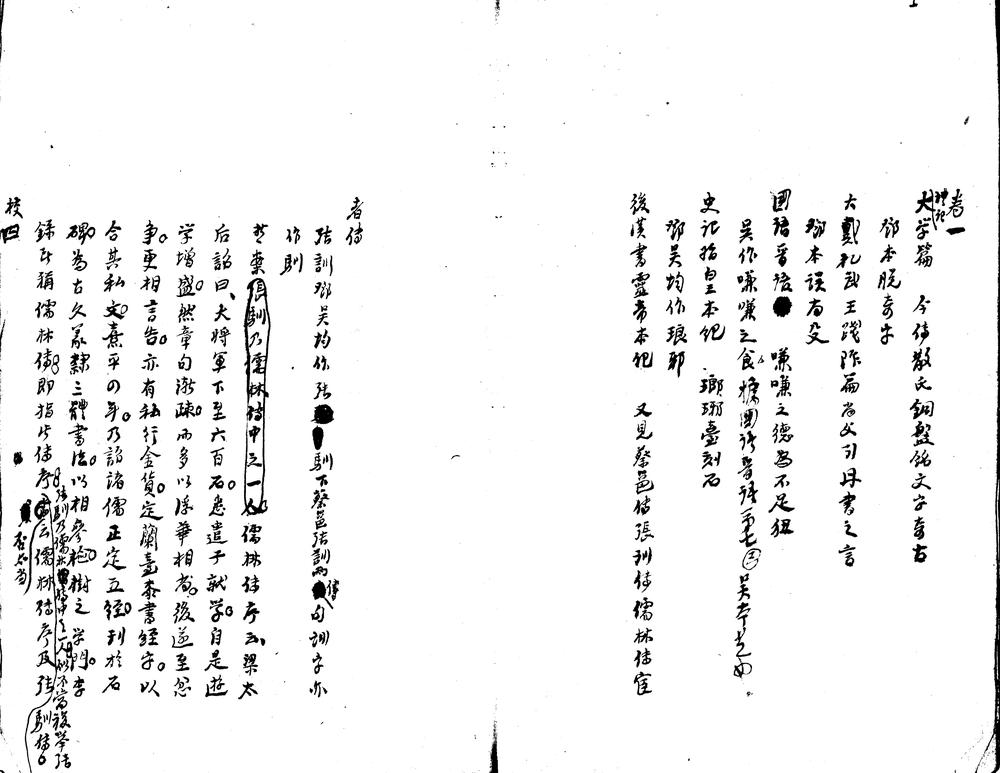 卷一
大学篇 今傳散氏銅盤銘文字奇古
禮記
鄧本脫奇字
大戴礼武王踐阼篇尚父引丹書之言
鄧本誤尚殳
國語晋语 嗛嗛之德
吴作嗛嗛之食 國语晋语第七
史记始皇本纪 瑯琊臺刻石
鄧吴均作琅邪
後漢書靈帝本纪 又見蔡邕傳張馴傳儒林傳宦
者傳
張訓鄧吴均作張 馴下蔡邕張訓 句训字亦
作馴
張馴乃儒林傳中之一人儒林傳序云梁太
后詔曰大将軍下至六百石悉遣子就学自是遊
学增盛然章句漸疎而多以浮華相尚後遂至忿
争更相言告亦有私行金貨定蘭臺桼書經字以
合其私文熹平四年乃詔諸儒正定五經刊於石
碑為古文篆隸三體書法以相參檢樹之学門李
錄此稱儒林傳即指此傳序 云儒林傳序及張馴傳
張馴乃儒林傳中之一人似不當複舉張
否不当
校